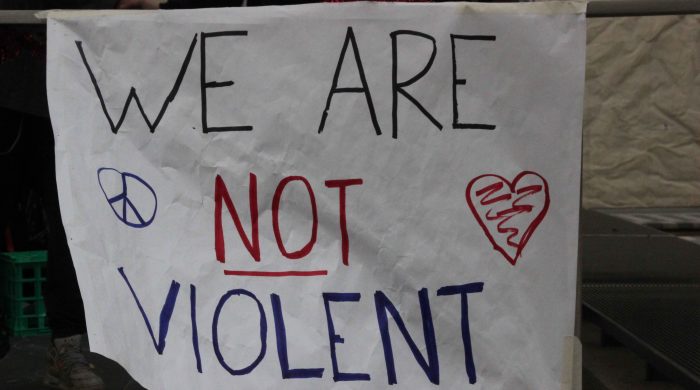 WE ARE
NOT
VIOLENT